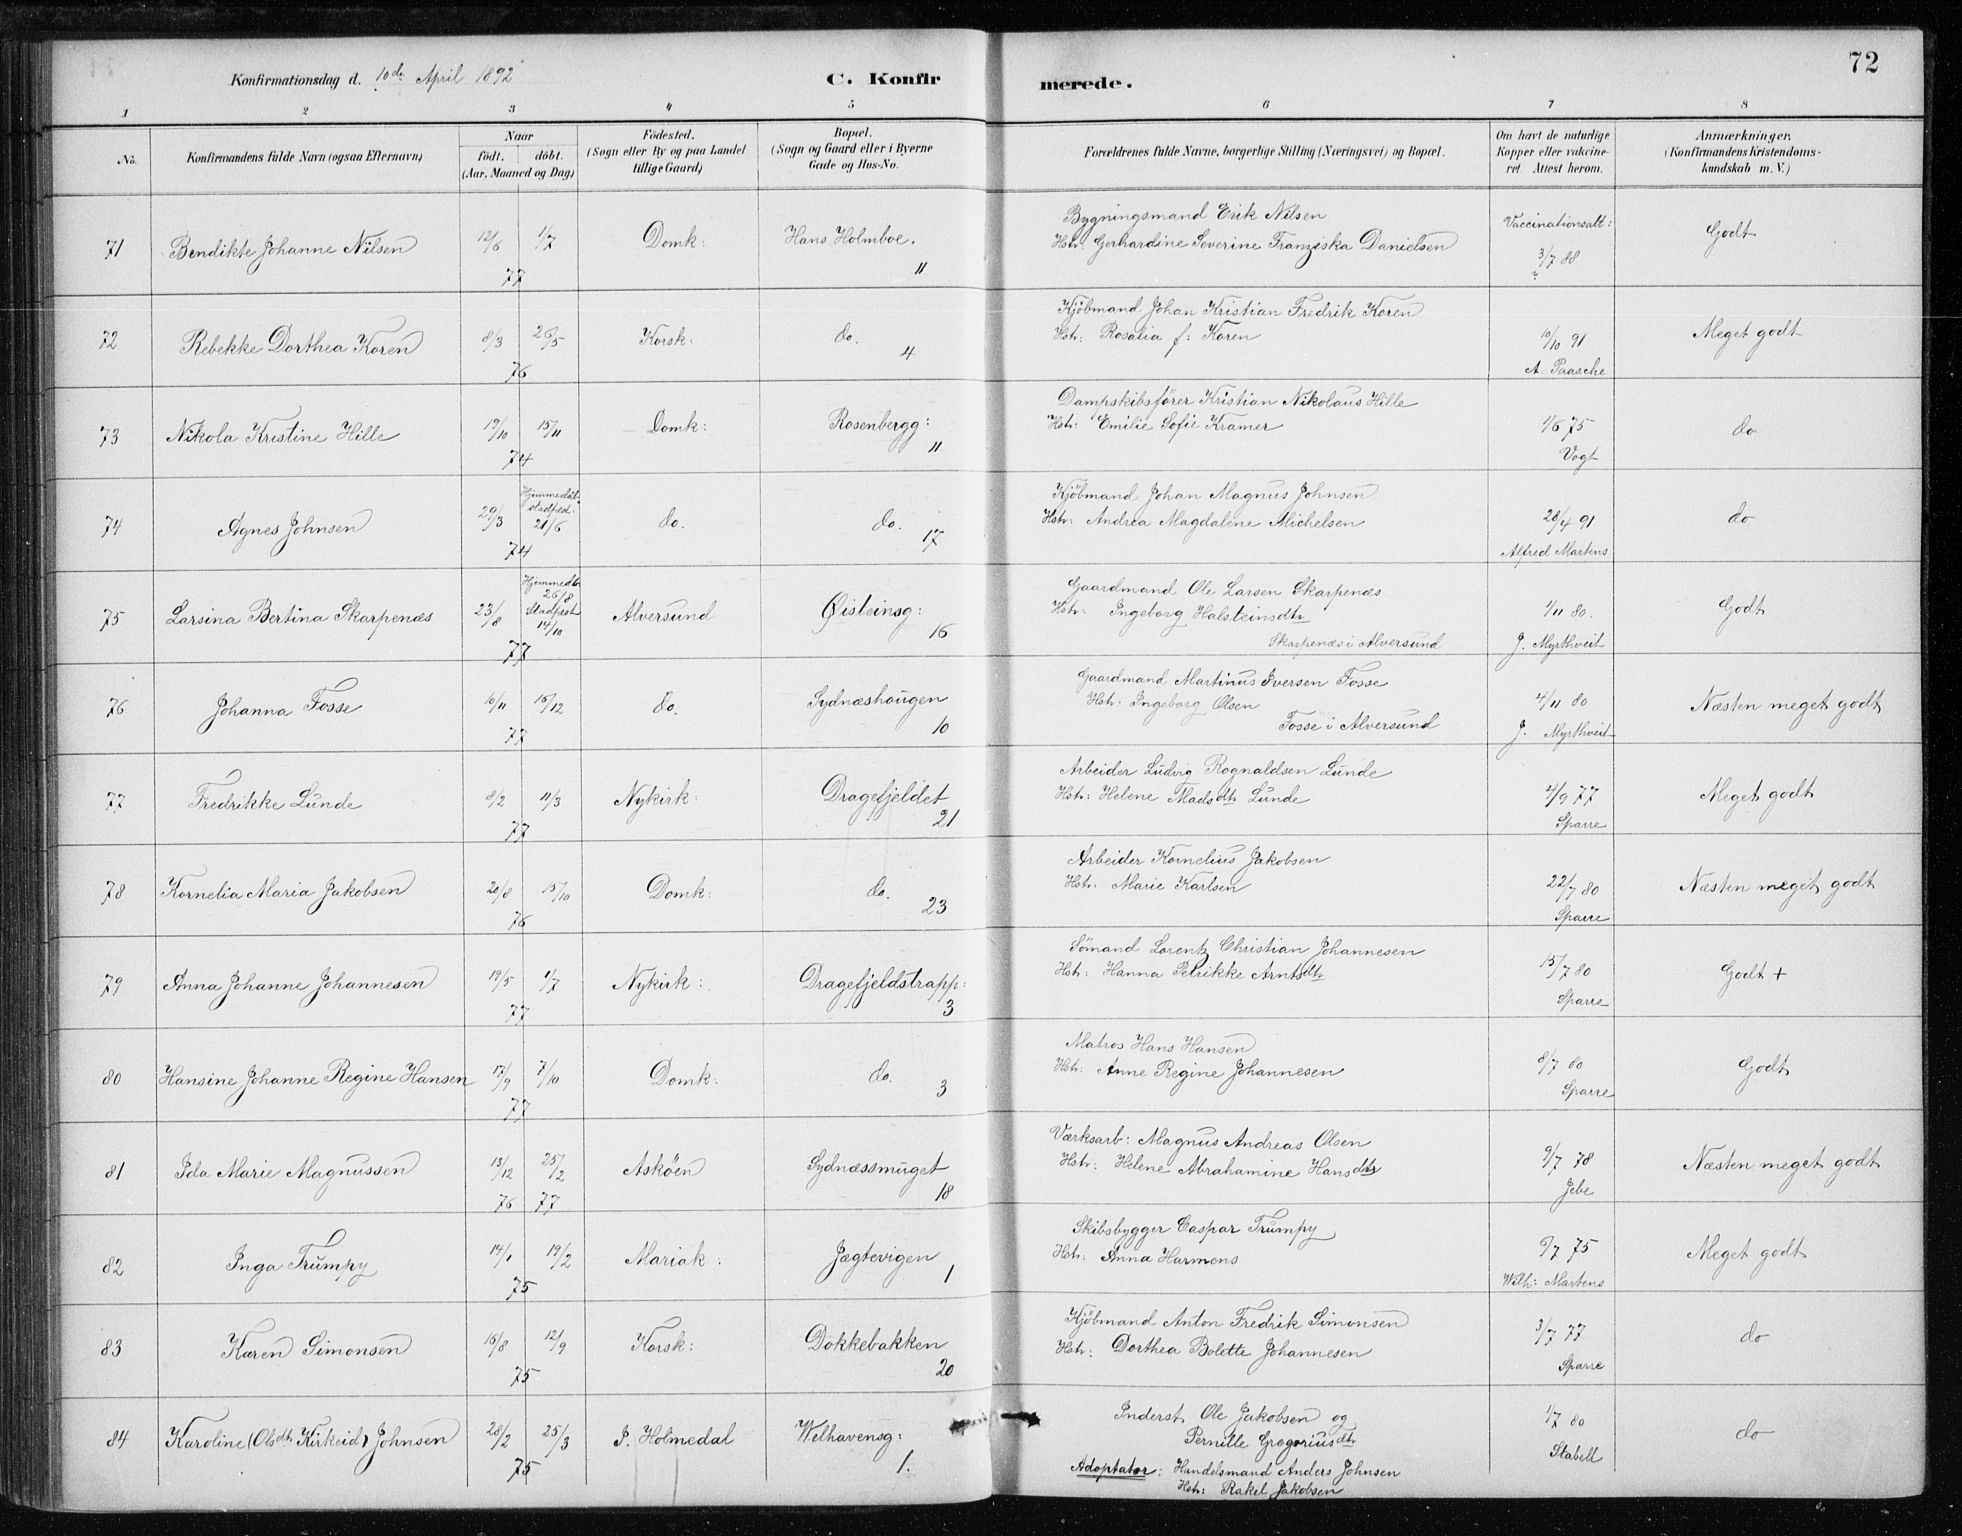 72
Konfirmationsdag d. 10de April 1892
C. Konfirmerede.
1 2 3 4 5 6 7 8
No.
Konfirmandens fulde Navn (ogsaa Efternavn)
Naar
født. døbt.
(Aar, Maaned og Dag)
Fødested.
(Sogn eller By og paa Landet
tillige Gaard)
Bopæl.
(Sogn og Gaard eller i Byerne
Gade og Hus-No.
Forældrenes fulde Navne, borgerlige Stilling (Næringsvei) og Bopæl.
Om havt de naturlige
Kopper eller vakcine-
ret. Attest herom.
Anmærkninger.
(Konfirmandens Kristendoms-
kundskab m. V.)
71 Bendikte Johanne Nilsen 12/6 1/7 77 Domk: Hans Holmboe. 11
Bygningsmand Erik Nilsen
Hstr: Gerhardine Severine Franziska Danielsen
Vaccinationsatt:
3/7 88
Godt
72 Rebekke Dorthea Koren 8/3 26/5 76 Korsk: do. 4
Kjöbmand Johan Kristian Fredrik Koren
Hstr: Rosalia f: Koren
10/10 91
A. Paasche
Meget godt
73 Nikola Kristine Hille 19/10 15/11 74 Domk: Rosenbergg: 11
Dampskibsfører Kristian Nikolaus Hille
Hstr: Emilie Sofie Kramer
1/6 75
Vogt
do
74 Agnes Johnsen 29/3 Hjemmedöbt.
stadfest:
21/6
74 do. do. 17
Kjöbmand Johan Magnus Johnsen
Hstr: Andrea Magdalene Michelsen
28/4 91
Alfred Martens
do
75 Larsina Bertina Skarpenæs 23/8 Hjemmedb
26/8
Stadfest
14/10
77 Alversund Øisteinsg: 16
Gaardmand Ole Larsen Skarpenæs
Hstr: Ingeborg Halsteinsdtr
Skarpenæs i Alversund
1/11 80.
J. Myrthveit
Godt
76 Johanna Fosse 10/11 16/12 77 do. Sydnæshaugen 10
Gaardmand Martinus Iversen Fosse
Hstr: Ingeborg Olsen
Fosse i Alversund
4/11 80
J. Myrthveit
Næsten meget godt
77 Fredrikke Lunde 8/2 11/3 77 Nykirk: Dragefjeldet 21
Arbeider Ludvig Rognaldsen Lunde
Hstr: Helene Madsdtr Lunde
4/9 77
Sparre
Meget godt
78 Kornelia Maria Jakobsen 20/8 15/10 76 Domk: do. 23
Arbeider Kornelius Jakobsen
Hstr: Marie Karlsen
22/7 80
Sparre
Næsten meget godt
79 Anna Johanne Johannesen 19/5 1/7 77 Nykirk: Dragefjeldstrapp: 3
Sömand Lorentz Christian Johannesen
Hstr: Hanna Petrikke Arntsdtr
15/7 80
Sparre
Godt +
80 Hansine Johanne Regine Hansen 17/9 7/10 77 Domk: do. 3
Matros Hans Hansen
Hstr: Anne Regine Johannesen
8/7 80
Sparre
Godt
81 Ida Marie Magnussen 13/12 25/2 76 77 Askøen Sydnæssmuget 18
Værksarb: Magnus Andreas Olsen
Hstr: Helene Abrahamine Hansdtr
9/7 78
Jebe
Næsten meget godt
82 Inga Trumpy 14/1 19/2 75 Mariak: Jægtevigen 1
Skibsbygger Caspar Trumpy
Hstr: Anna Harmens
6/7 75
Wilh: Martens
Meget godt
83 Karen Simonsen 16/8 12/9 75 Korsk: Dokkebakken 20
Kjöbmand Anton Fredrik Simonsen
Hstr: Dorthea Bolette Johannesen
3/7 77
Sparre
do
84 Karoline (Olsdtr Kirkeid) Johnsen 28/2 25/3 75 I. Holmedal Welhavensg: 1.
Inderst Ole Jakobsen og
Pernille Gregoriusdtr
Adoptator: Handelsmand Anders Johnsen
Hstr: Rakel Jakobsen
1/7 80
Stabell
do